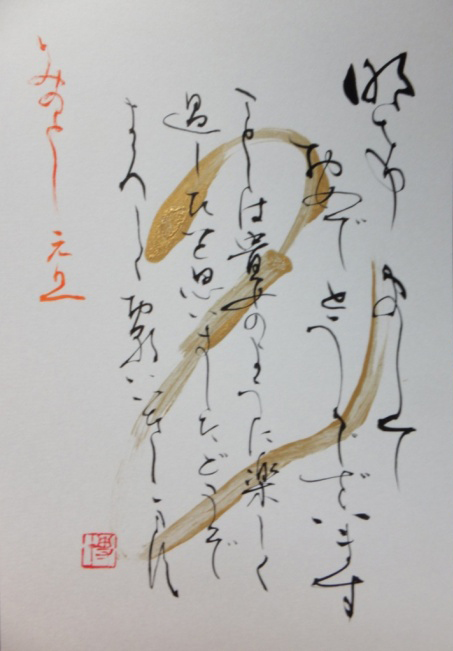 明けまして
おめでとうございます
ことしは貴女のように楽しく
過したいと思いますどうぞ
よろしくお願いいたします
みのとし 元旦